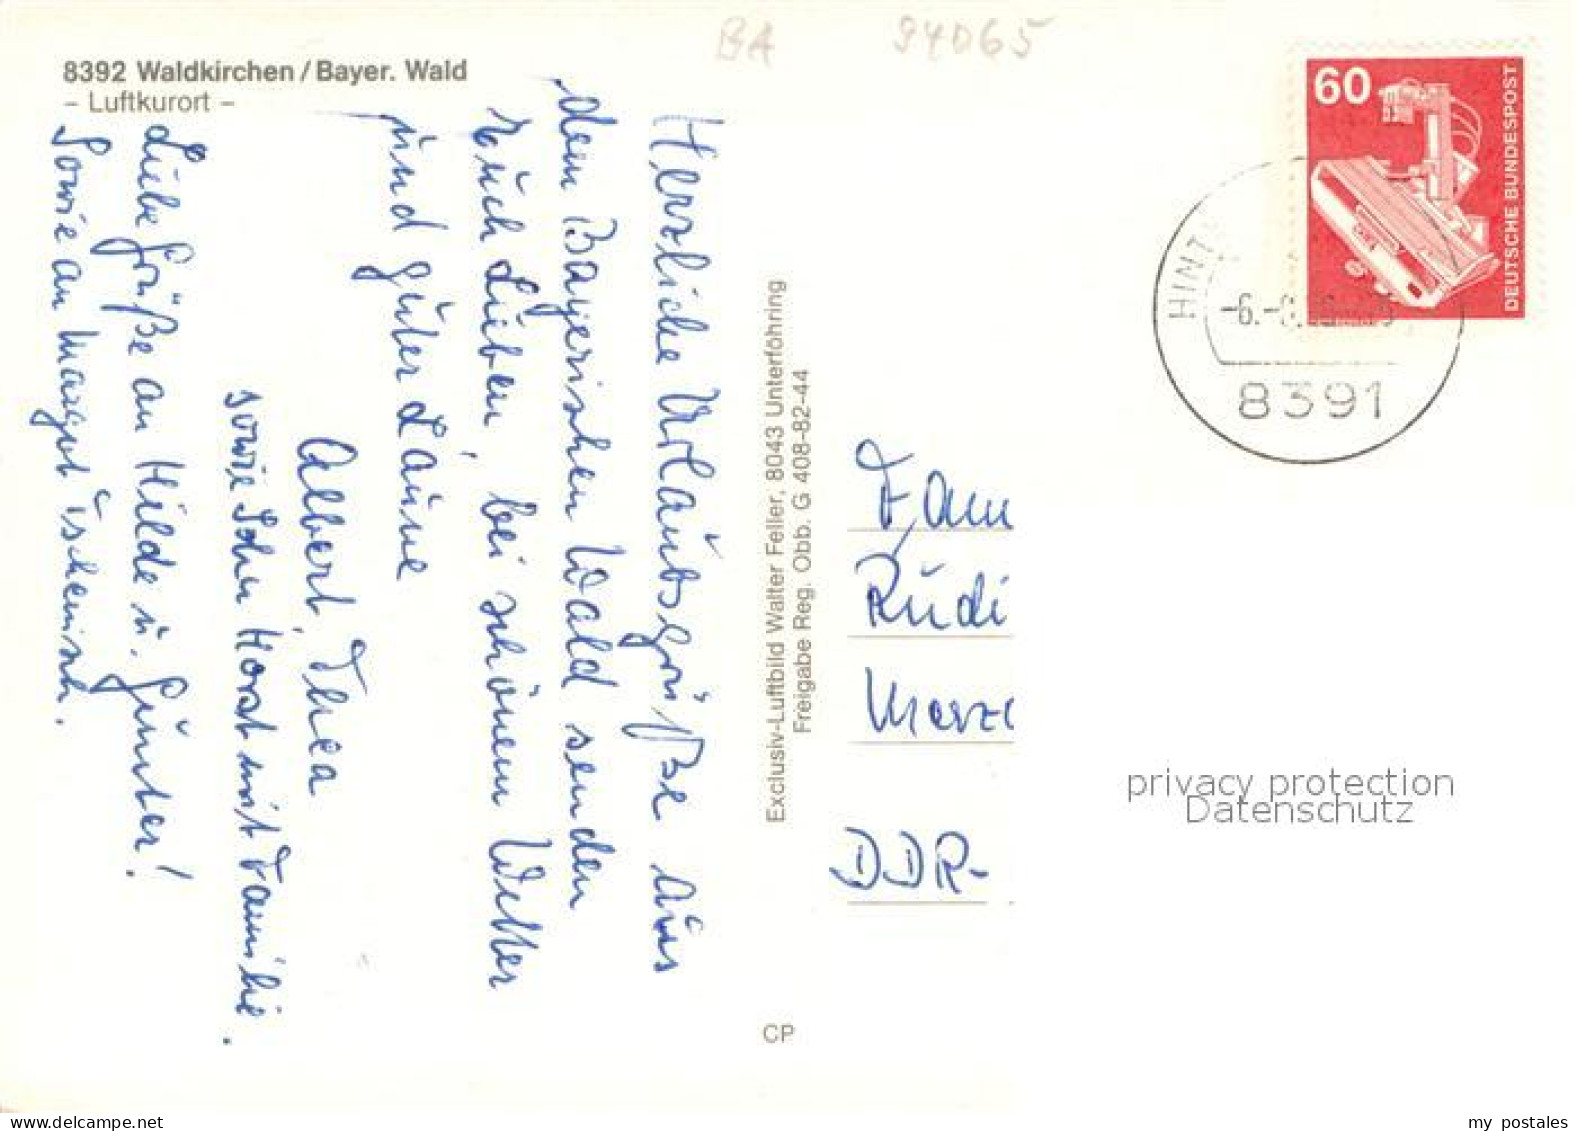 BA 94065
8392 Waldkirchen / Bayer. Wald
– Luftkurort –
Herzliche Urlaubsgrüße aus
dem Bayerischen Wald senden
Euch Lieben, bei schönem Wetter
und guter Laune
Albert, Thea
sowie Sohn Horst mit Familie.
Liebe Grüße an Hilde u. Günter!
Sowie an Margot
Exclusiv-Luftbild Walter Feller, 8043 Unterföhring
Freigabe Reg. Obb. G 408-82-44
CP
60
DEUTSCHE BUNDESPOST
8391
Fam
Rüdi
DDR-
privacy protection
Datenschutz
my postales